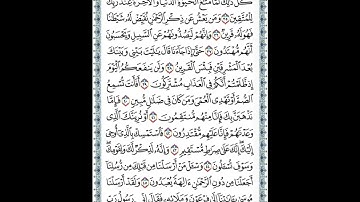 كُلُّ ذَٰلِكَ لَمَّا مَتَٰعُ ٱلْحَيَوٰةِ ٱلدُّنْيَا وَٱلْءَاخِرَةُ عِندَ رَبِّكَ
لِلْمُتَّقِينَ ٣٥ وَمَن يَعْشُ عَن ذِكْرِ ٱلرَّحْمَٰنِ نُقَيِّضْ لَهُۥ شَيْطَٰنًا
فَهُوَ لَهُۥ قَرِينٌ ٣٦ وَإِنَّهُمْ لَيَصُدُّونَهُمْ عَنِ ٱلسَّبِيلِ وَيَحْسَبُونَ
أَنَّهُم مُّهْتَدُونَ ٣٧ حَتَّىٰٓ إِذَا جَآءَنَا قَالَ يَٰلَيْتَ بَيْنِى وَبَيْنَكَ
بُعْدَ ٱلْمَشْرِقَيْنِ فَبِئْسَ ٱلْقَرِينُ ٣٨ وَلَن يَنفَعَكُمُ ٱلْيَوْمَ
إِذ ظَّلَمْتُمْ أَنَّكُمْ فِى ٱلْعَذَابِ مُشْتَرِكُونَ ٣٩ أَفَأَنتَ تُسْمِعُ
ٱلصُّمَّ أَوْ تَهْدِى ٱلْعُمْىَ وَمَن كَانَ فِى ضَلَٰلٍ مُّبِينٍ ٤٠ فَإِمَّا
نَذْهَبَنَّ بِكَ فَإِنَّا مِنْهُم مُّنتَقِمُونَ ٤١ أَوْ نُرِيَنَّكَ ٱلَّذِى
وَعَدْنَٰهُمْ فَإِنَّا عَلَيْهِم مُّقْتَدِرُونَ ٤٢ فَٱسْتَمْسِكْ بِٱلَّذِىٓ أُوحِىَ
إِلَيْكَ إِنَّكَ عَلَىٰ صِرَٰطٍ مُّسْتَقِيمٍ ٤٣ وَإِنَّهُۥ لَذِكْرٌ لَّكَ وَلِقَوْمِكَ
وَسَوْفَ تُسْـَٔلُونَ ٤٤ وَسْـَٔلْ مَنْ أَرْسَلْنَا مِن قَبْلِكَ مِن رُّسُلِنَآ
أَجَعَلْنَا مِن دُونِ ٱلرَّحْمَٰنِ ءَالِهَةً يُعْبَدُونَ ٤٥ وَلَقَدْ أَرْسَلْنَا
مُوسَىٰ بِـَٔايَٰتِنَآ إِلَىٰ فِرْعَوْنَ وَمَلَإِي۟هِۦ فَقَالَ إِنِّى رَسُولُ رَبِّ